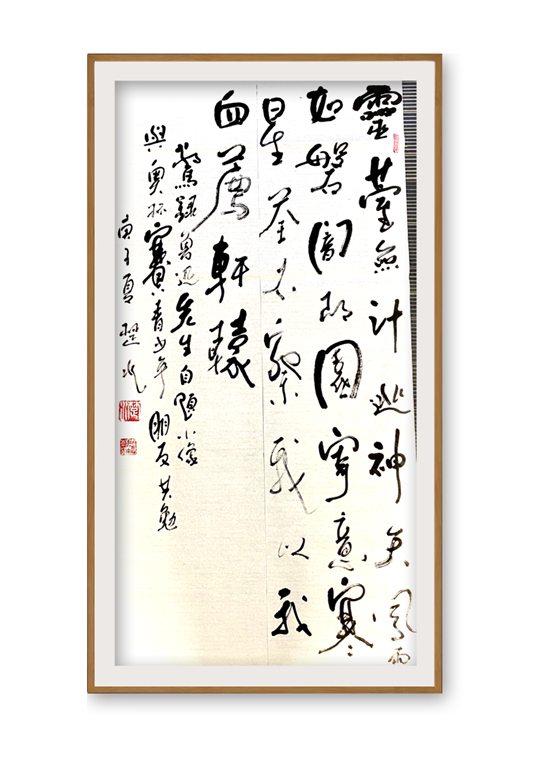 靈臺無計逃神矢風雨
如磐闇故園寄意寒
星荃不察我以我
血薦軒轅
敬録魯迅先生自題小像
與奥杯賽青少年朋友共勉
庚子夏楚水